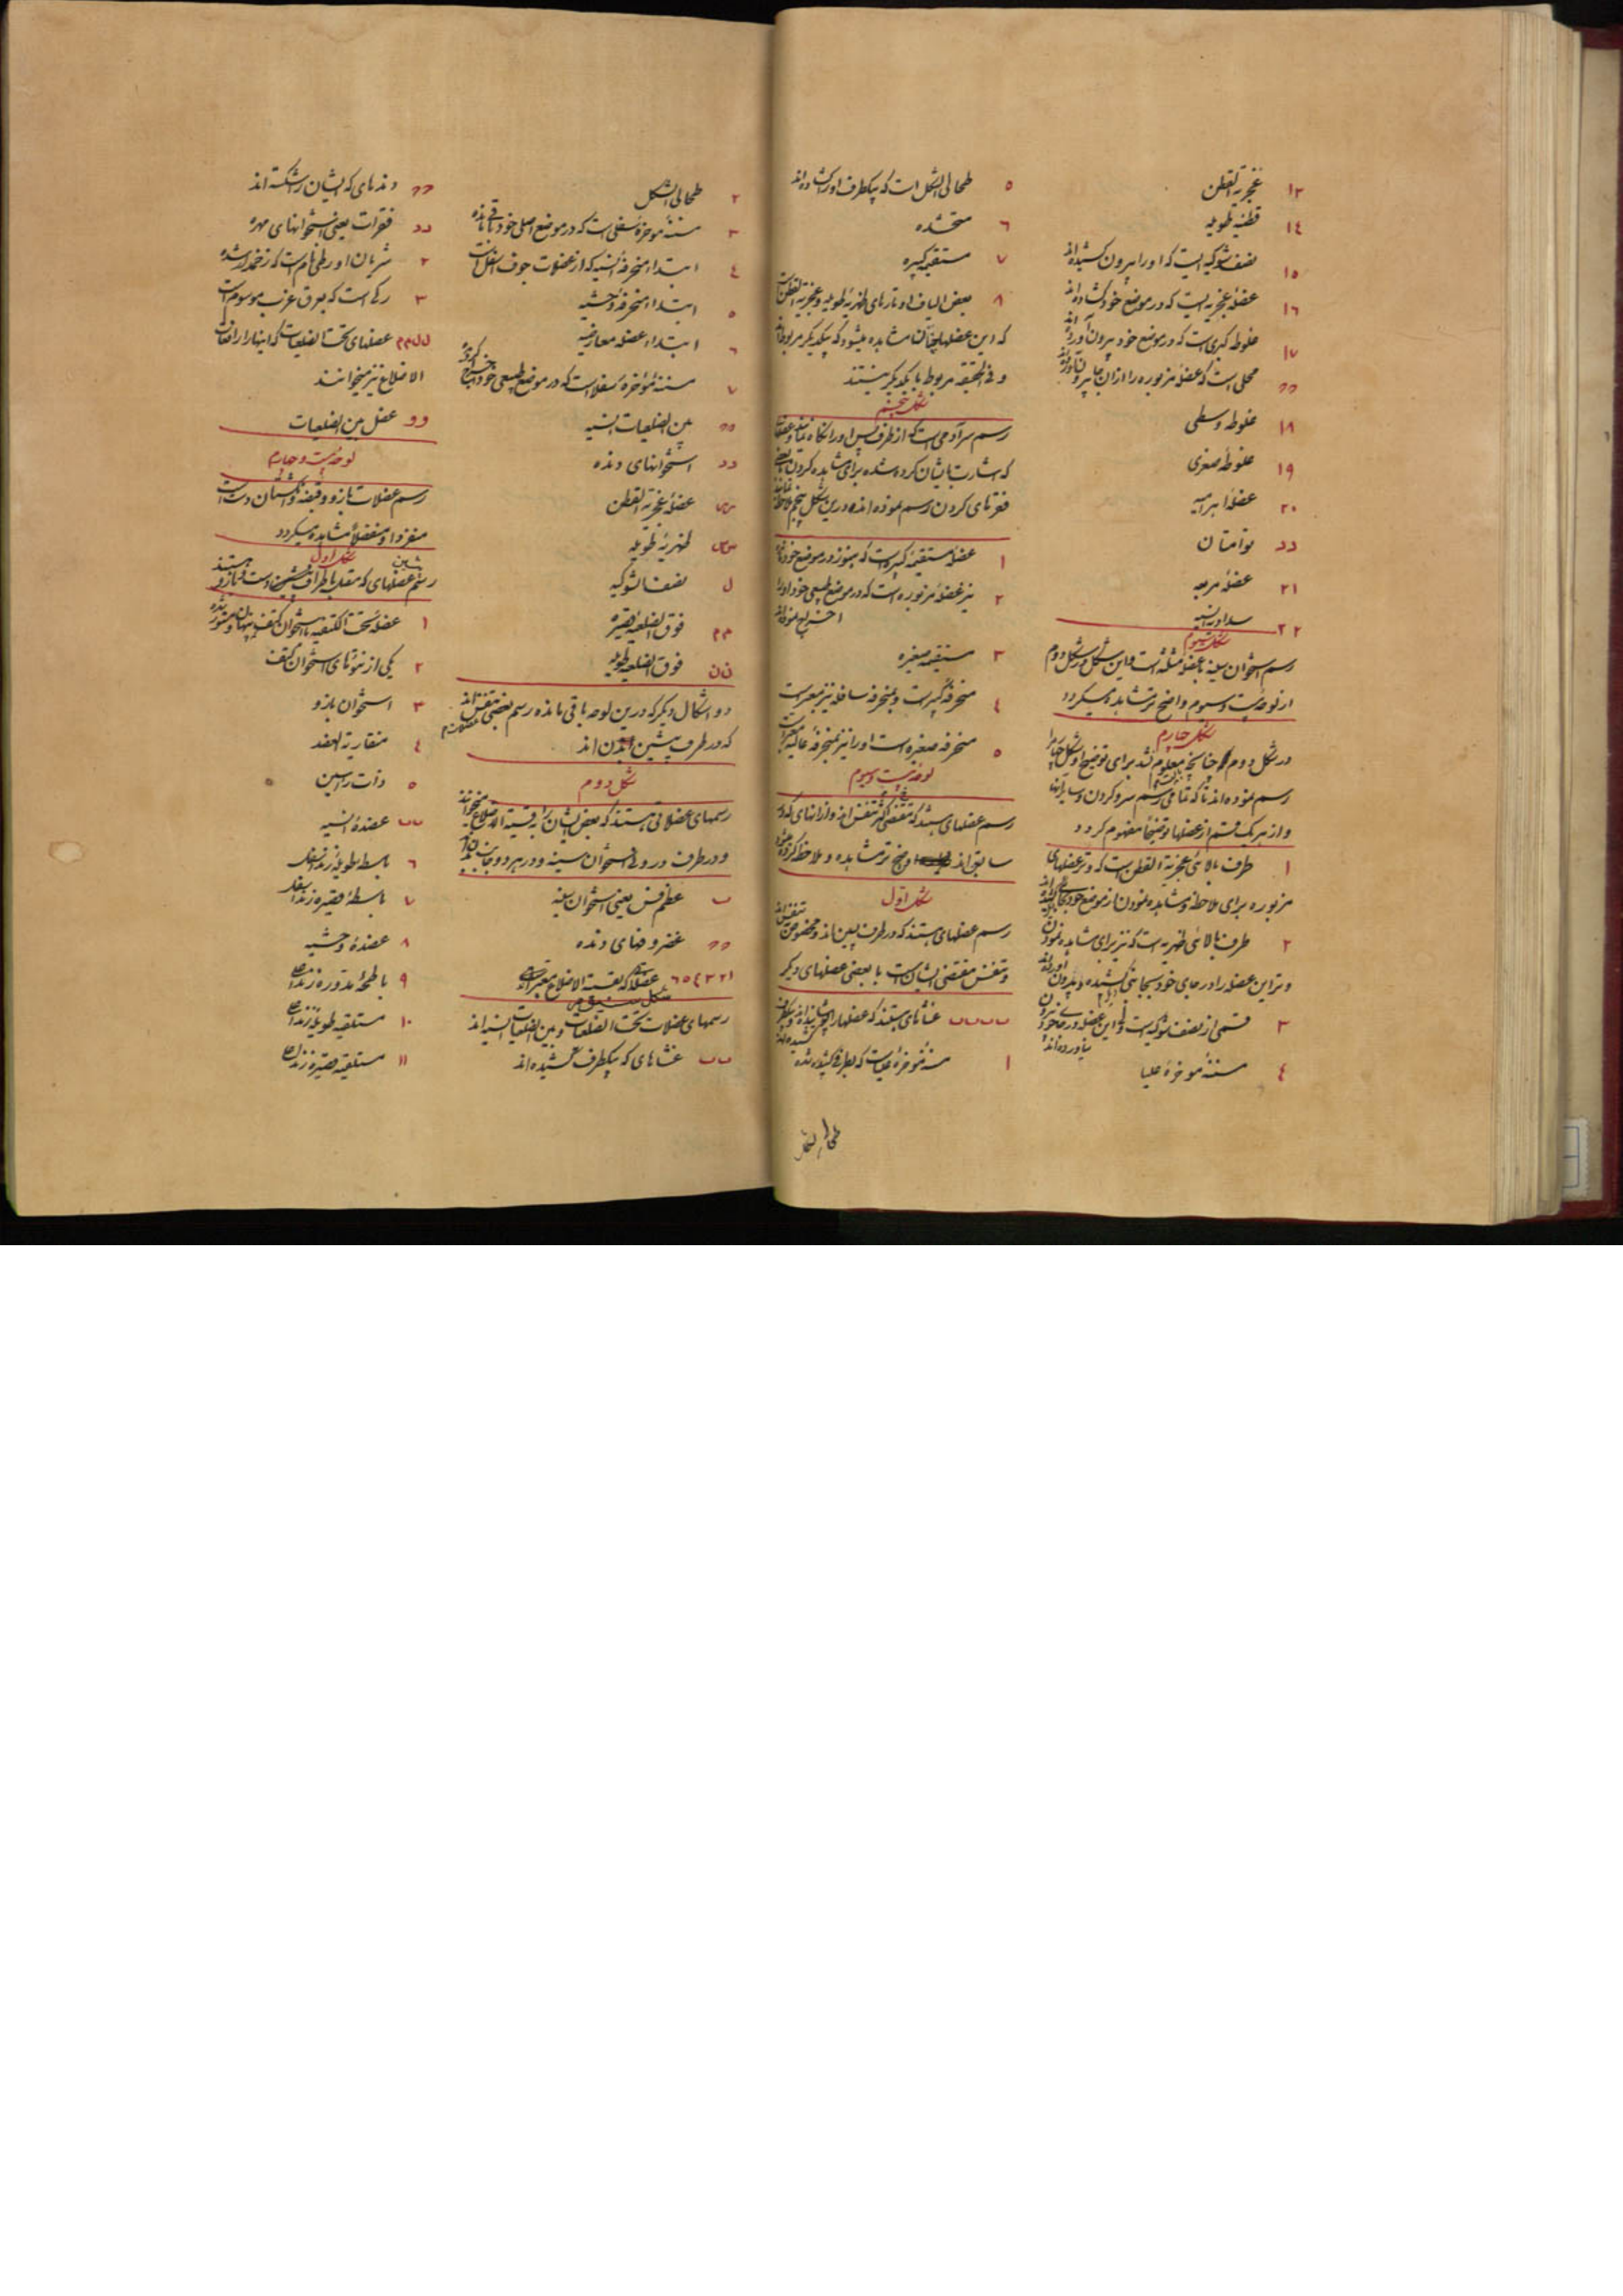 ۱۳ عجزیة القطن
۱٤ قطنیه طویله
۱۵ نصف شوکیه ایست که او را بیرون کشیده اند
۱٦ عضلهٔ عجزیه ایست که در موضع خود گشاده اند
۱۷ کبری است که در موضع خود بیرون آورده اند
محلی است که عضلهٔ مزبوره را از ان جا بیرون آورده اند
۱۸ وسطی
۱۹ صغری
۲۰ عضلهٔ
دد توامتان
۲۱ عضله مربعه
۲۲
شکل سیوم
رسم استخوان سینه با عضلهٔ مثلثه است و این شکل در شکل دوم
از لوحهٔ بیست و سیوم واضح تر مشاهده میگردد
شکل چهارم
در شکل دوم چنانچه معلوم شد برای توضیح او شکل چهار را
رسم نموده اند تا که تمامی رسم سر و گردن و سایر آنها
و از هر یک قسم از عضلها توضیحا مفهوم گردد
۱ طرف بالائی عجزیة القطن است که وتر عضلهای
مزبوره برای ملاحظه و مشاهده نمودن از موضع خود
۲ طرف بالائی ظهریه است که نیز برای مشاهده نمودن
وتر این عضله را در جای خود بجانبی کشیده و بیرون آورده اند
۳ قسمی از نصف شوکیه است و این عضله در جا خود
بیاورده اند
٤ مسننهٔ موخرهٔ علیا
۵ طحالی الشکل است که بیکطرف او را گشاده اند
٦
۷ مستقیمه کبیره
۸ بعض الیاف اوتارهای ظهریهٔ طویله و عجزیة القطن است
که این عضلها چنان مشاهده میشود که بیکدیگر مربوط اند
و فی الحقیقه مربوط با یکدیگر نیستند
شکل پنجم
رسم سر آدمی است که از طرف پس او را نگاه
که اشارت بایشان کرده شده برای مشاهده کردن
فقرهای گردن رسم نموده اند و درین شکل پنجم ملاحظه
۱ عضلهٔ مستقیمهٔ کبیره است که هنوز در موضع خود
۲ نیز عضلهٔ مزبوره است که در موضع طبیعی خود او را
اخراج نموده اند
۳ مستقیمه صغیره
٤ منحرفهٔ کبیره است و بمنحرفه سافله نیز معبر است
۵ منحرفه صغیره است او را نیز بمنحرفهٔ عالیه معبر است
لوحهٔ بیست و سیوم
رسم عضلهای هستند که متقضی تنفس اند و از آنهای که در
سابق اند واضح تر مشاهده و ملاحظه کرده میشود
شکل اول
رسم عضلهای هستند که در طرف پسین اند و مخصوص تنفس اند
و تنفس مقتضی ایشان است با بعضی عضلهای دیگر
ب ب ب ب غشاهای هستند که عضلها را پوشانیده اند و بیکطرف
کشیده اند
۱ مسننهٔ موخرهٔ علیا است که بطرفی کشیده شده
طحالی الشکل
۲ طحالی الشکل
۳ مسننهٔ موخرهٔ سفلی است که در موضع اصلی خود باقی مانده
٤ ابتداء منحرفهٔ انسیه که از عضلات جوف اسفل است
۵ ابتداء منحرفهٔ وحشیه
٦ ابتداء عضلهٔ معارضه
۷ مسننهٔ موخرهٔ سفلا است که در موضع طبیعی خود اخراج کرده
بین الضلعیات انسیه
دد استخوانهای دنده
س س عضلهٔ عجزیة القطن
ظهریهٔ طویله
ل نصف الشوکیه
م م فوق الضلعیه قصیره
ن ن فوق الضلعیه طویله
دو اشکال دیگر که درین لوحه باقی مانده رسم بعضی تنفس اند
که در طرف پیشین بدن اند
شکل دوم
رسمهای عضلاتی هستند که بعض ایشان را بقسیة الاضلاع میخوانند
و در طرف درونی استخوان سینه و در هر دو جانب بدن
ب عظم قص یعنی استخوان سینه
غضروفهای دنده
۱ ۲ ۳ ٤ ۵ ٦ عضلها که بقسیة الاضلاع معبر اند
شکل سیوم
رسمهای عضلات تحت الضلعیات و بین الضلعیات انسیه اند
ب ب غشاهای که بیکطرف کشیده اند
دندهای که ایشان را شکسته اند
دد فقرات یعنی استخوانهای مهره
۲ شریان اورطی نام است که زخمدار شده
۳ رگی است که بعرق عزب موسوم است
ل ل م م عضلهای تحت الضلعیات که اینها را رافعات
الاضلاع نیز میخوانند
و و عضل بین الضلعیات
لوحهٔ بیست و چهارم
رسم عضلات بازو و قبضه و انگشتان دست است
منفردا و منفصلا مشاهده میگردد
شکل اول
رسم عضلهای که متعلق باطراف پیشین دست و بازو هستند
۱ عضلهٔ تحت الکتفیه با استخوان کتف پنهان و مستور شده
۲ یکی از نتوهای استخوان کتف
۳ استخوان بازو
٤ منقاریة العضد
۵ ذات راسین
ب ب عضدهٔ انسیه
٦ باسطه طویله زند اسفل
۷ باسطهٔ قصیره زند اسفل
۸ عضدهٔ وحشیه
۹ باطحهٔ مدوره زند اعلی
۱۰ مستلقیه طویلهٔ زند اعلی
۱۱ مستلقیه قصیره زند اعلی